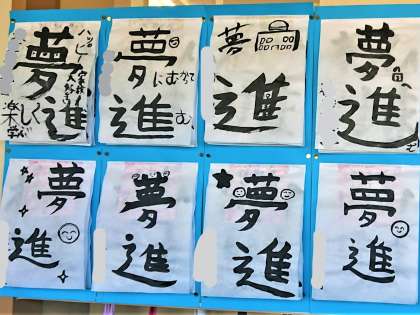 ハッピー
夢
進
楽しく
学ぶ
夢
にむかって
進む
夢
進
夢
へ
進む
夢
進
夢
進
夢
進
夢
進